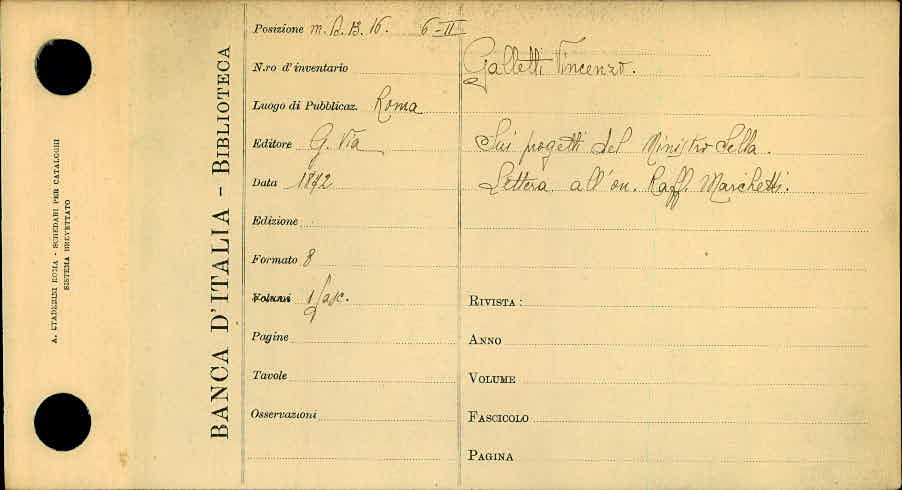 A. STADERINI ROMA - SCHEDARI PER CATALOGHI
SISTEMA BREVETTATO
BANCA D'ITALIA - BIBLIOTECA
Posizione m. B. B. 16. 6-II
N.ro d'inventario
Luogo di Pubblicaz. Roma
Editore G. Via
Data 1872
Edizione
Formato 8
Volumi 1 fasc.
Pagine
Tavole
Osservazioni
Galletti Vincenzo.
Sui progetti del Ministro Sella.
Lettera all'on. Raff. Marchetti.
RIVISTA:
ANNO
VOLUME
FASCICOLO
PAGINA